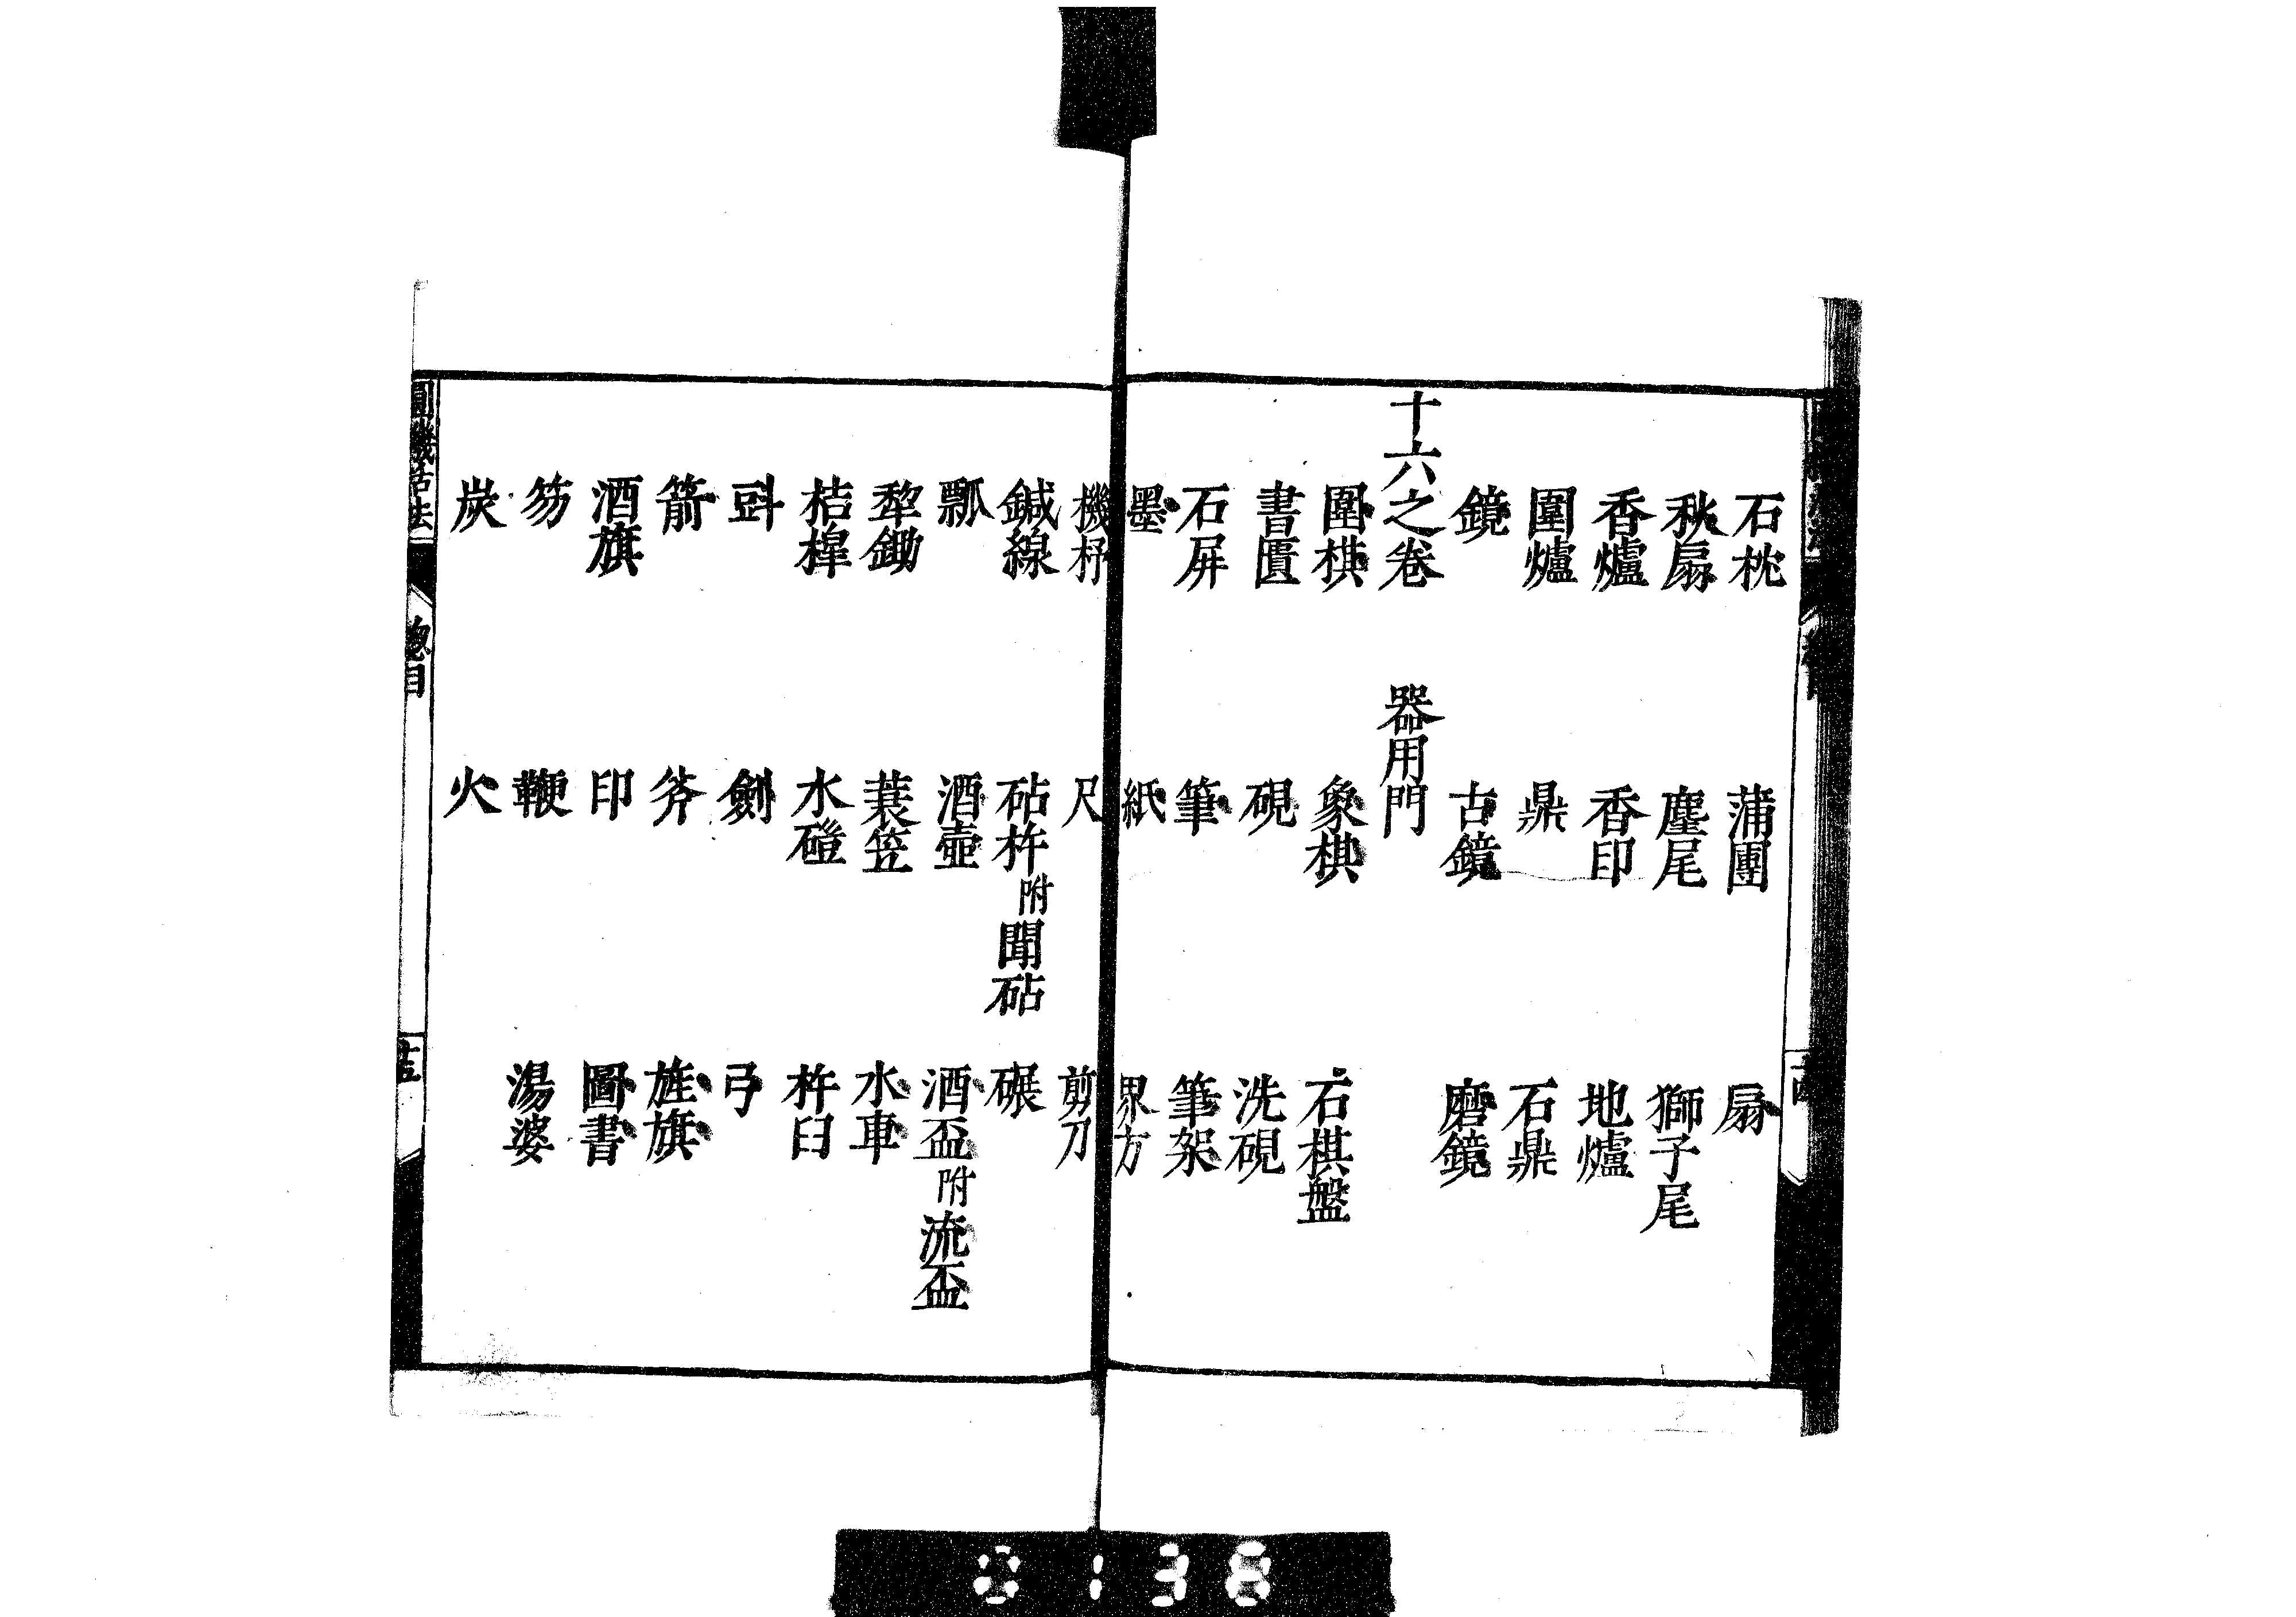 石枕 蒲團 扇
秋扇 麈尾 獅子尾
香爐 香印 地爐
圍爐 鼎 石鼎
鏡 古鏡 磨鏡
十六之卷 器用門
圍棋 象棋 石棋盤
書匱 硯 洗硯
石屏 筆 筆架
墨 紙 界方
機杼 尺 剪刀
鍼線 砧杵附聞砧 碾
瓢 酒壺 酒盃附流盃
犂鋤 蓑笠 水車
桔槹 水磑 杵臼
斝 劍 弓
箭 斧 旌旗
酒旗 印 圖書
笏 鞭 湯婆
炭 火
圓機活法 總目 十五
0136